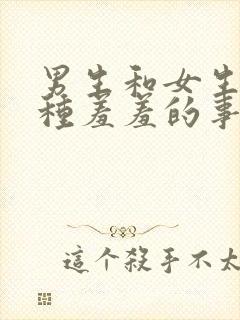 男生和女生
種羞羞的事
這个殺手不太